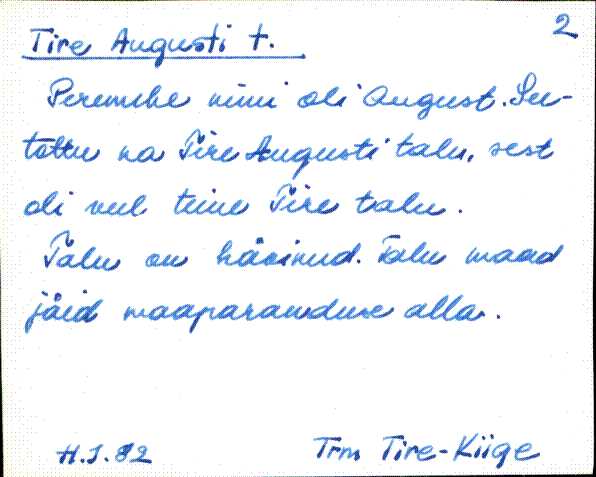 2
Tire Augusti t.
Peremehe nimi oli August. See-
tõttu ka Tire Augusti talu, sest
oli veel teine Tire talu.
Talu on hävinud. Talu maad
jäid maaparanduse alla.
H.J.82 Trm Tire-Kiige